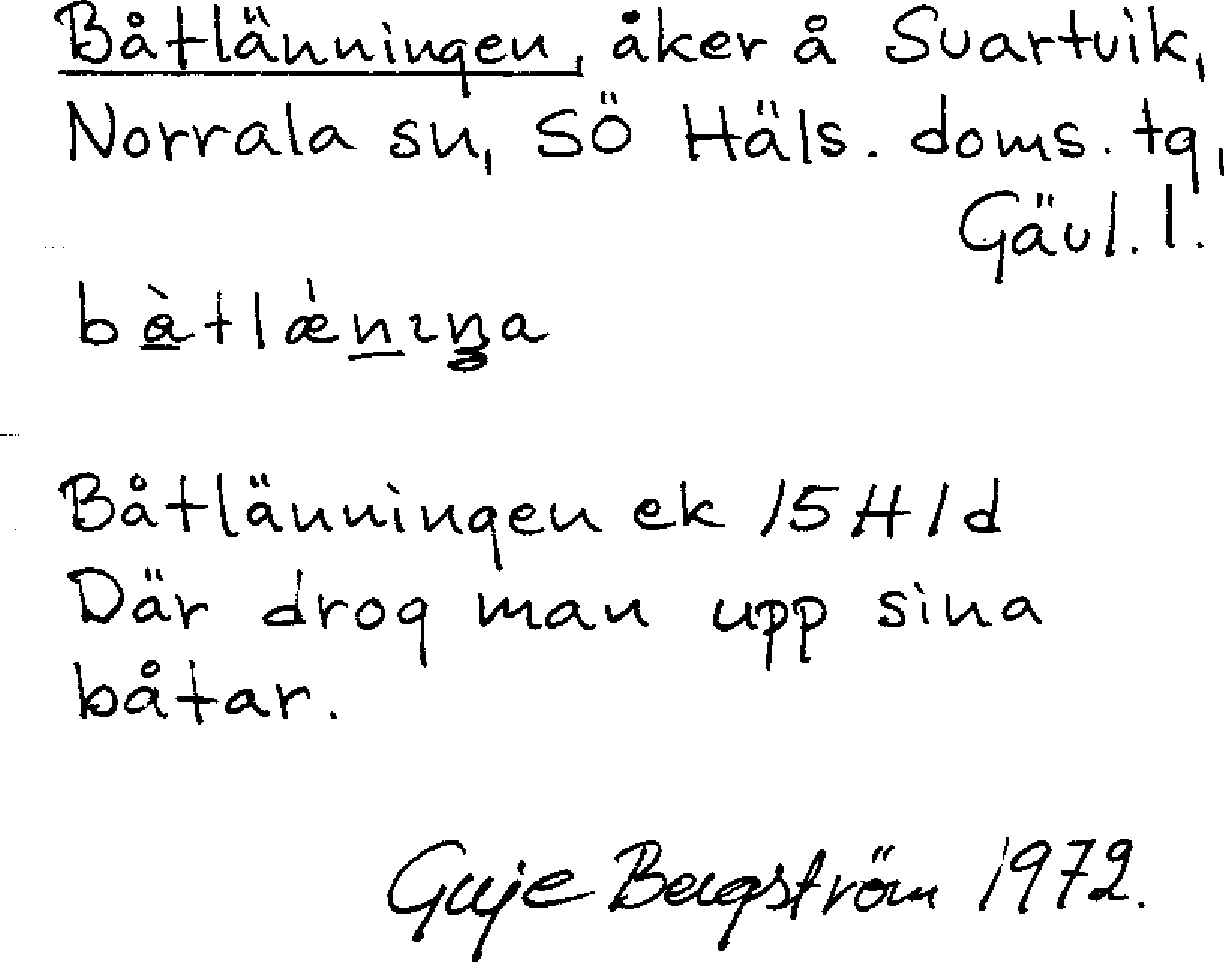 Båtlänningen, åker å Svartvik,
Norrala sn, SÖ Häls. doms. tg,
Gävl. l.
bàtlǽnıŋa
Båtlänningen ek 15 H 1 d
Där drog man upp sina
båtar.
Guje Bergström 1972.